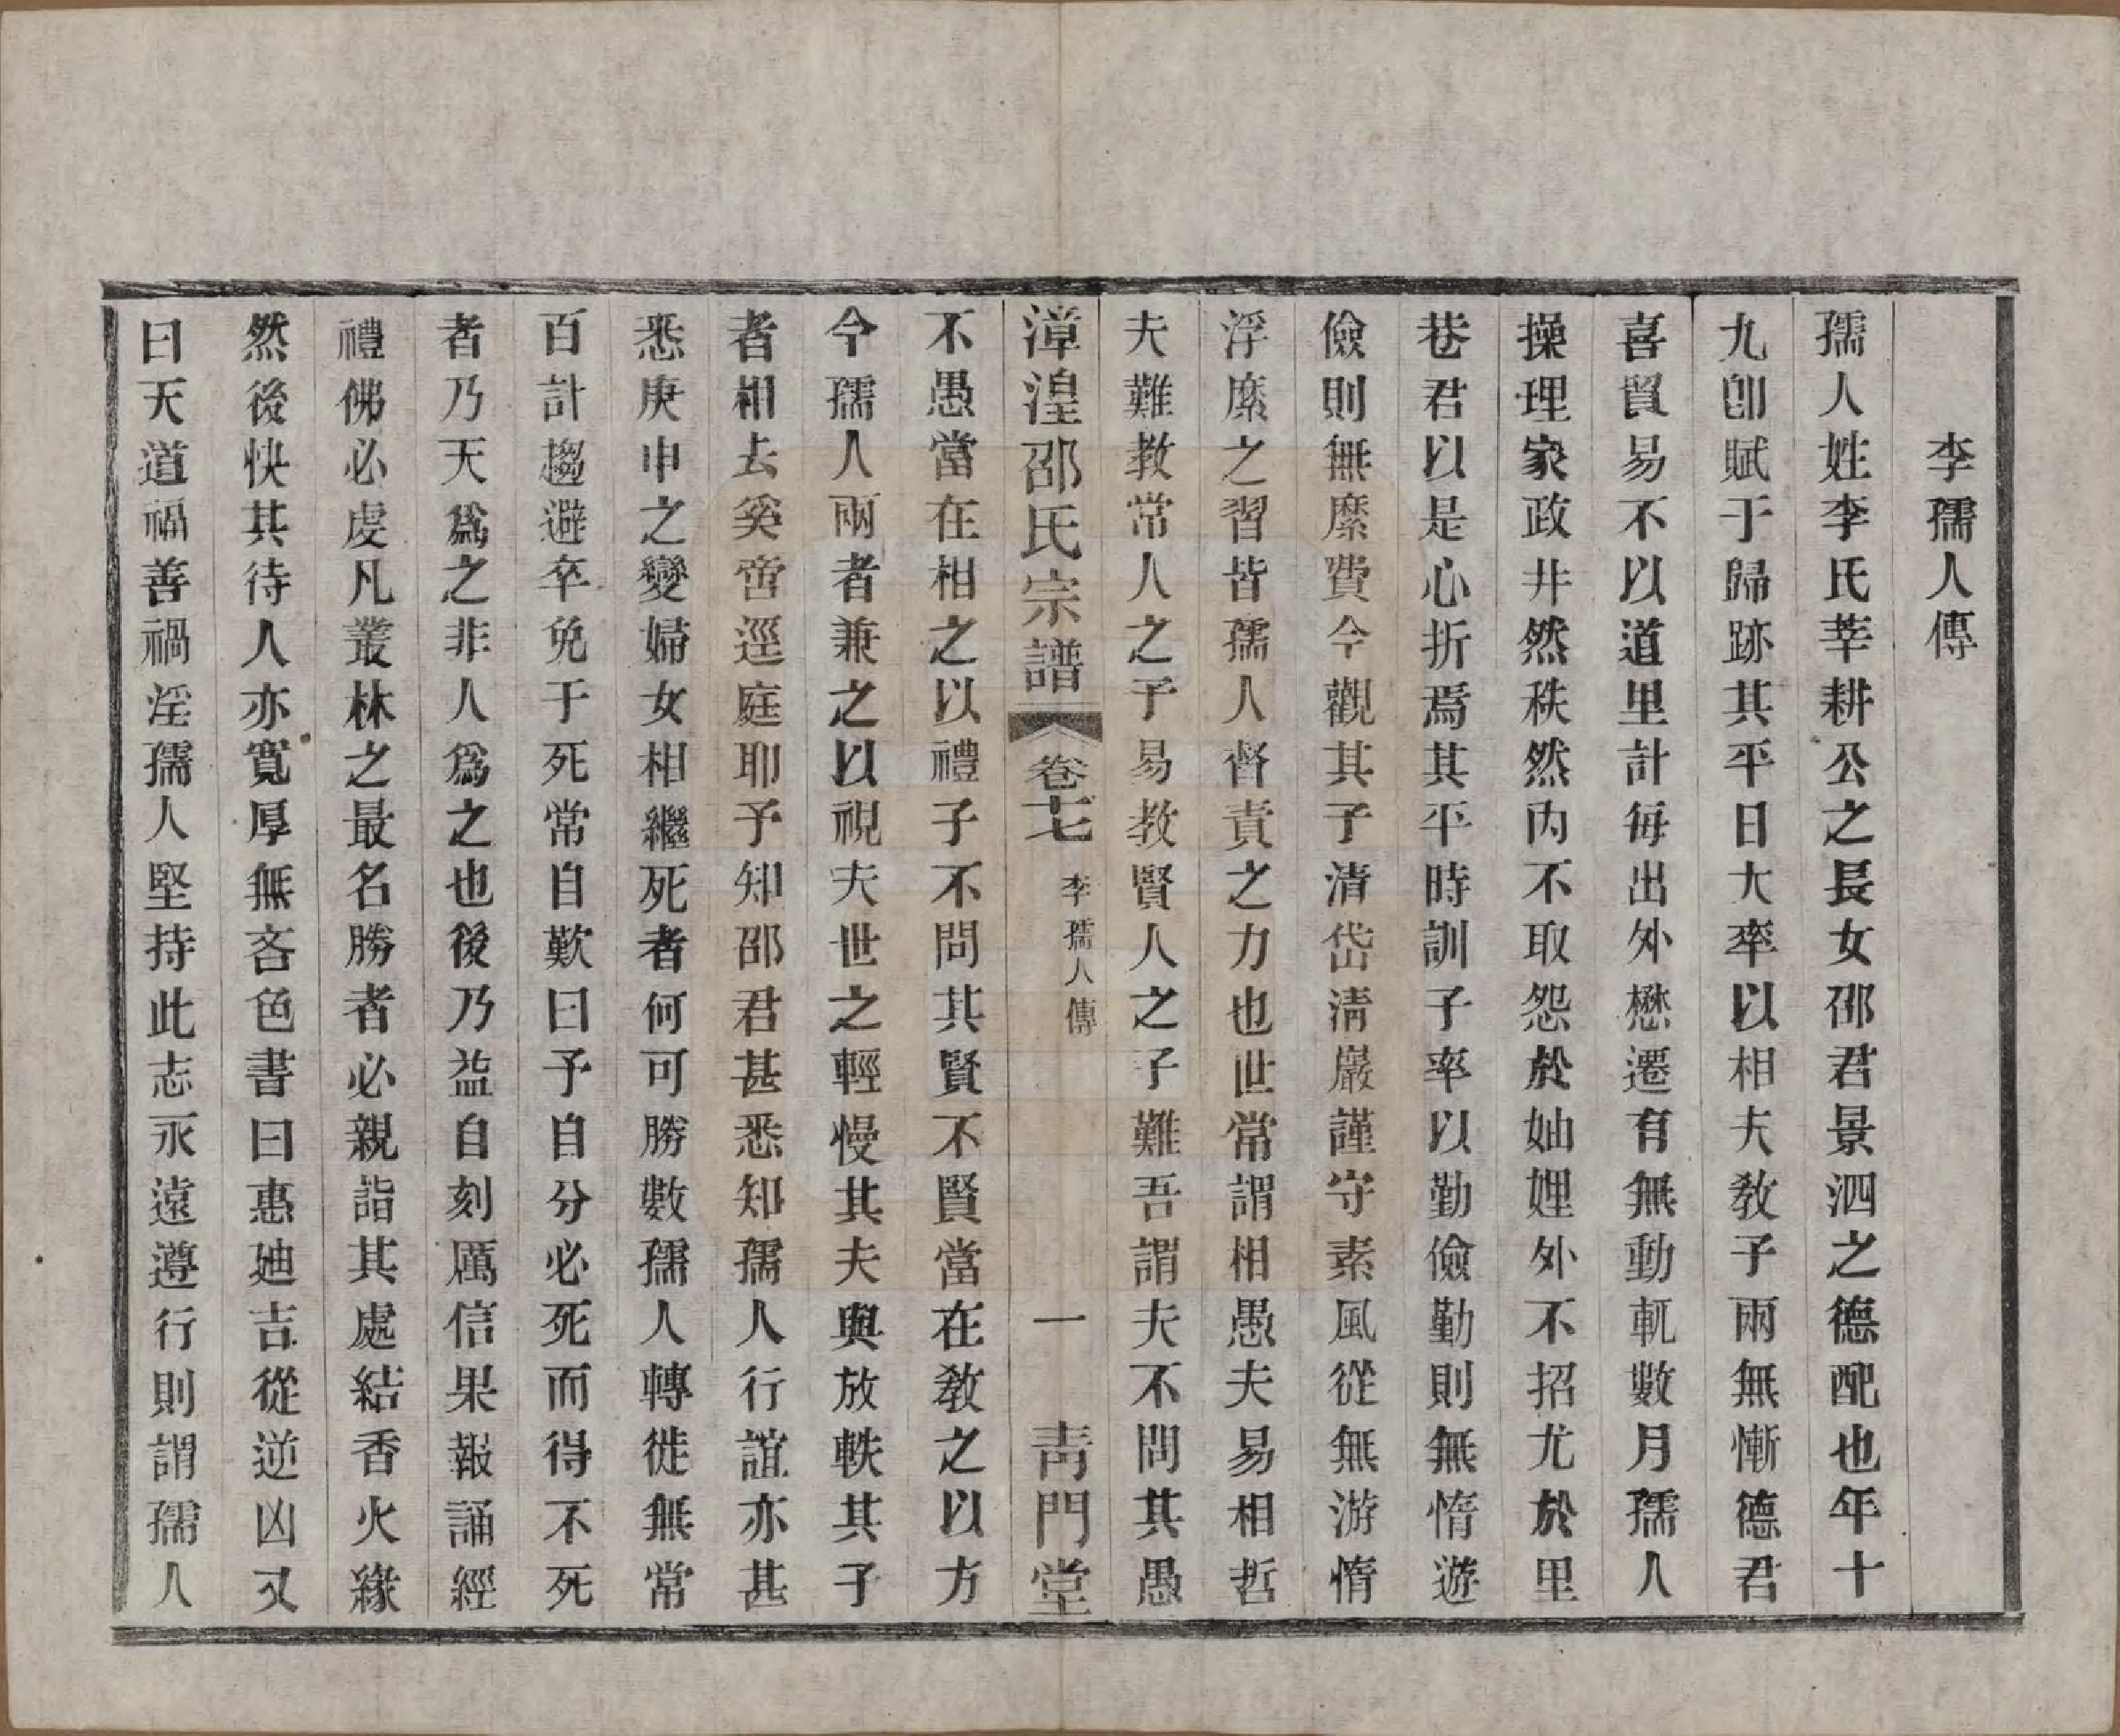 李孺人傳
孺人姓李氏莘耕公之長女邵君景泗之德配也年十
九卽賦于歸跡其平日大率以相夫敎子兩無慚德君
喜貿易不以道里計每出外懋遷有無動輒數月孺人
操理家政井然秩然內不取怨於妯娌外不招尤於里
巷君以是心折焉其平時訓子率以勤儉勤則無惰遊
儉則無糜費今觀其子清岱淸嚴謹守素風從無游惰
浮糜之習皆孺人督責之力也世常謂相愚夫易相哲
夫難教常人之子易教賢人之子難吾謂夫不問其愚
漳湟邵氏宗譜 卷七 李孺人傳 一 青門堂
不愚當在相之以禮子不問其賢不賢當在敎之以方
今孺人兩者兼之以視夫世之輕慢其夫與放軼其子
者相去奚啻逕庭耶予知邵君甚悉知孺人行誼亦甚
悉庚申之變婦女相繼死者何可勝數孺人轉徙無常
百計趨避卒免于死常自歎曰予自分必死而得不死
者乃天爲之非人爲之也後乃益自刻厲信果報誦經
禮佛必虔凡叢林之最名勝者必親詣其處結香火緣
然後快其待人亦寬厚無吝色書曰惠迪吉從逆凶又
曰天道福善禍淫孺人堅持此志永遠遵行則謂孺人